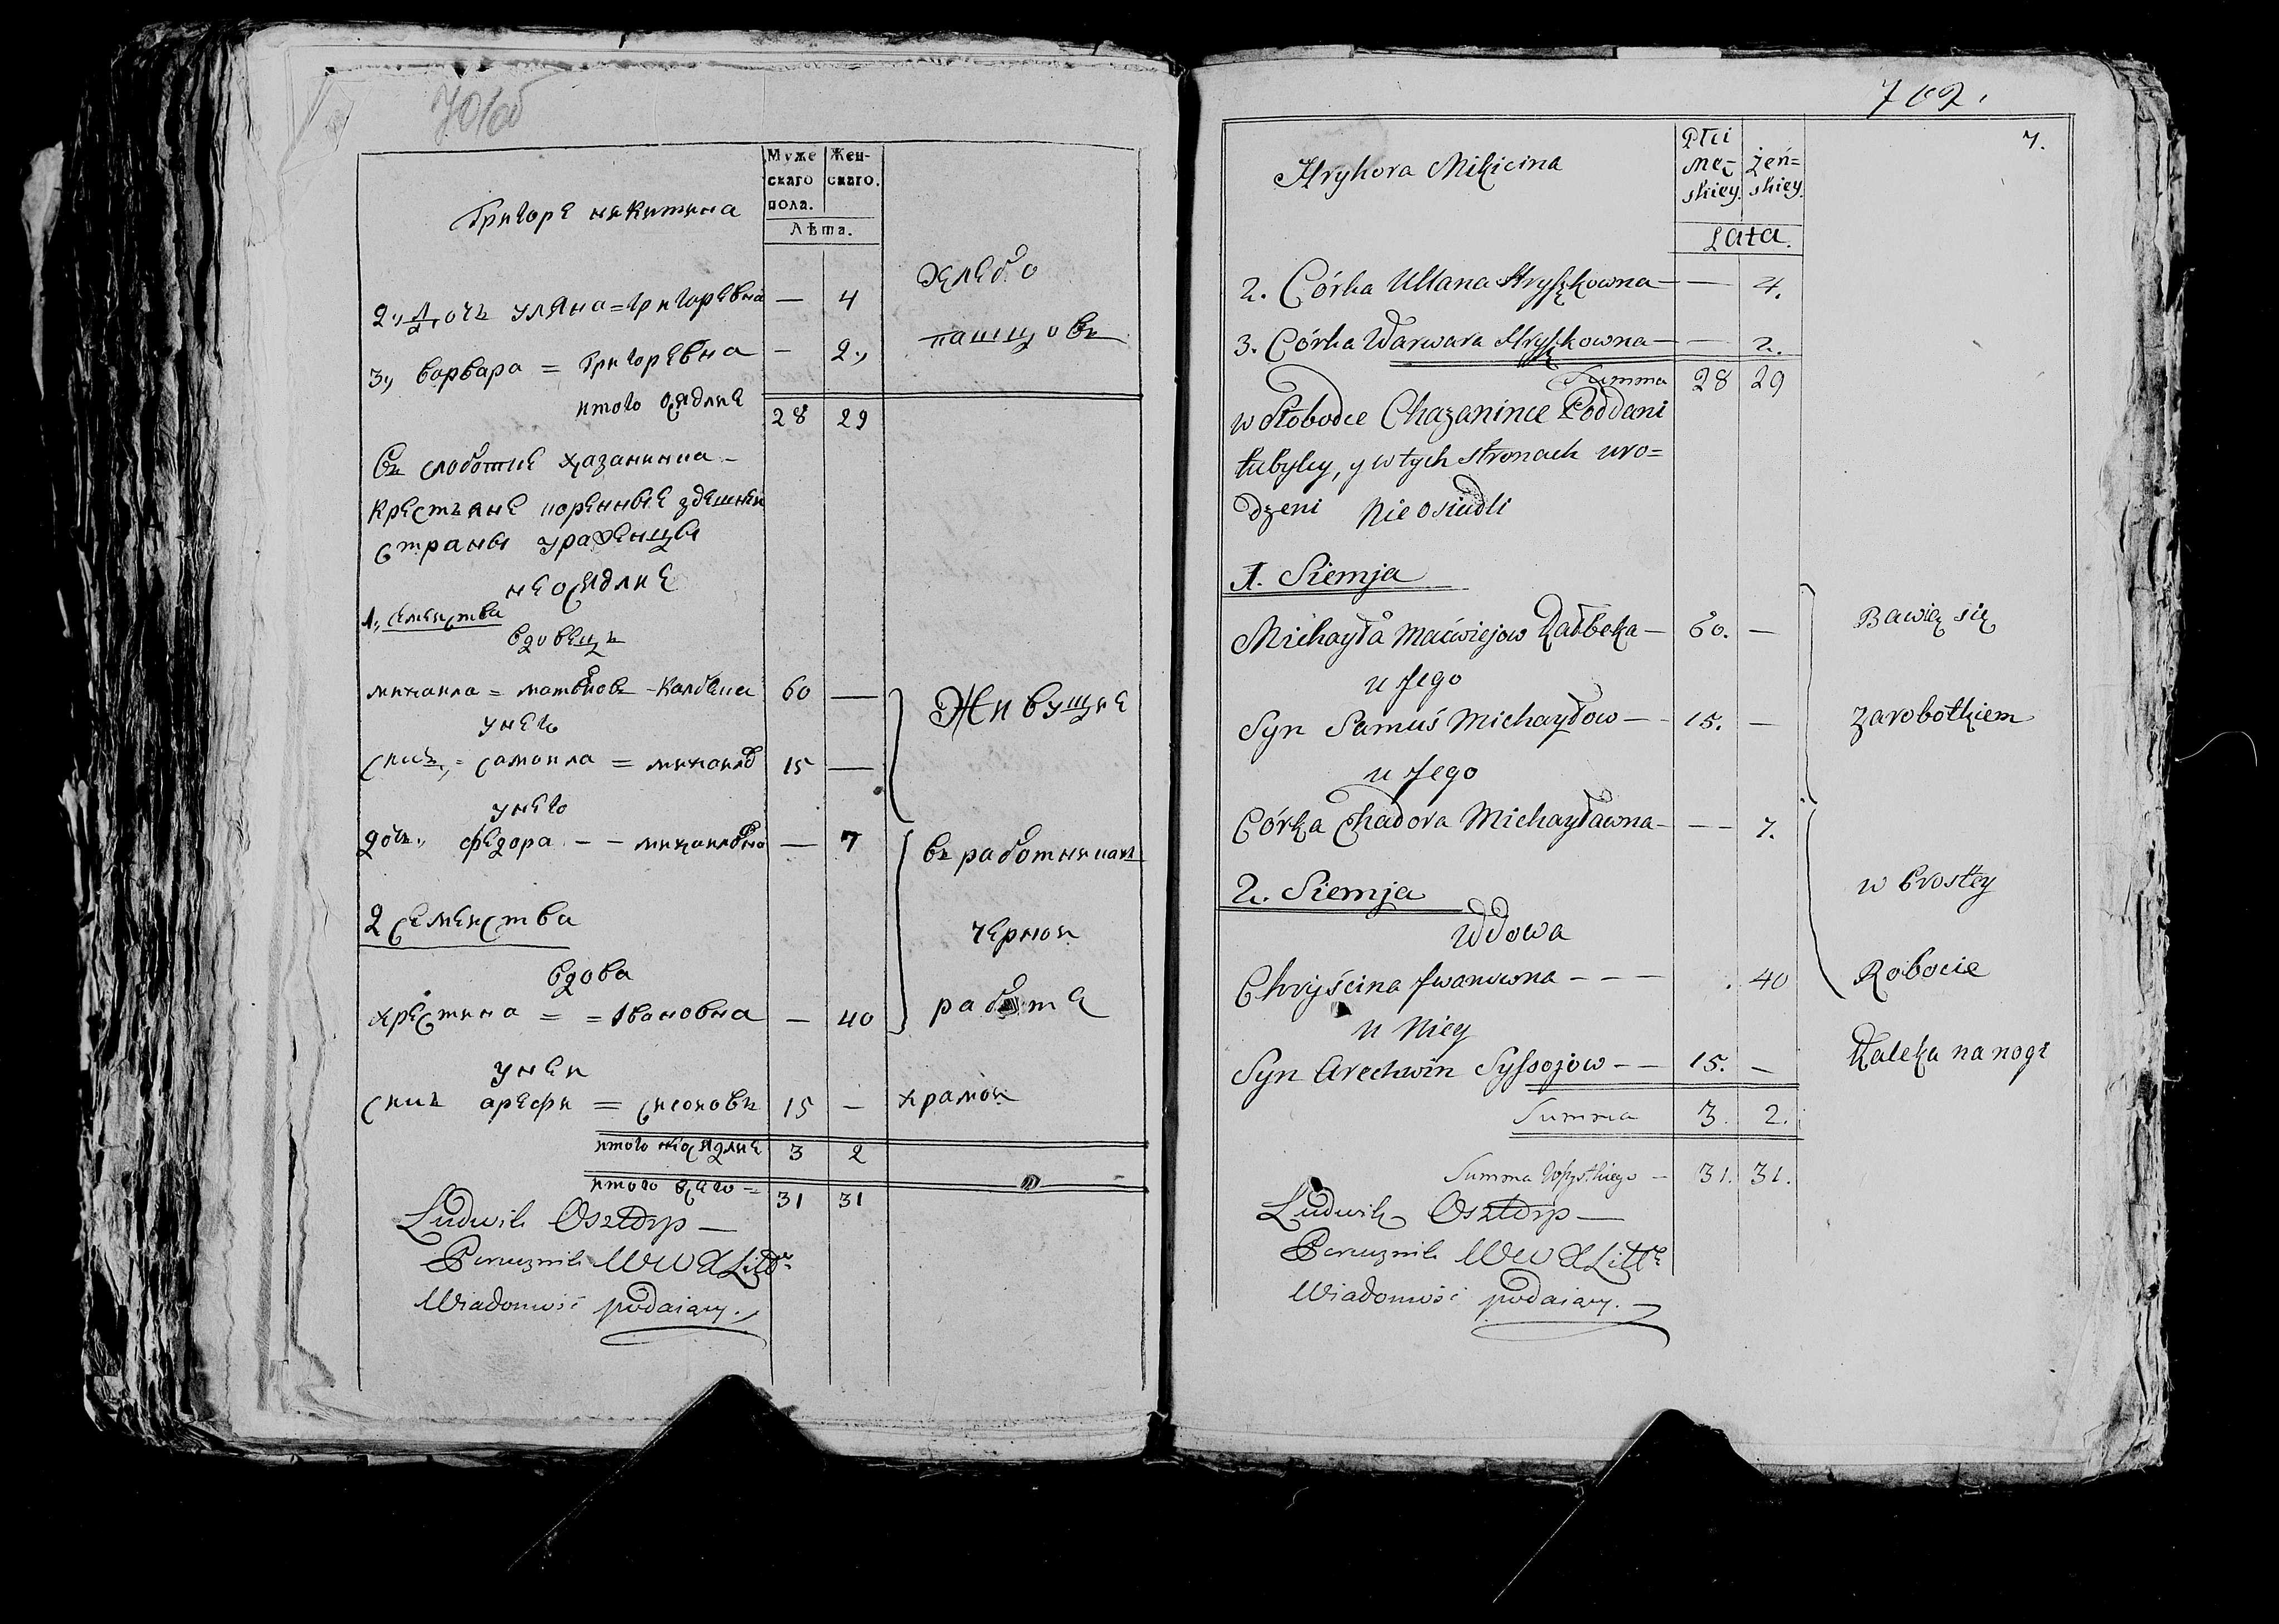 701об
Муже Жен-
скаго скаго.
пола.
Лѣта.
Григоре никитина
2., дочь уляна = григоревна — 4
хлебо
3., варвара = григоревна — 2.,
пашцовъ
итого осядлие 28 29
въ слободце хазанинца
крестьяне коренные здешней
страны уроженцы
неосядлие
1., семейства
вдовецъ
михаила = матвеювъ - калбека 60 —
Живущие
унего
синъ., = самоила = михаилов 15 —
унего
дочь., федора - - михаиловна — 7
въ работникахъ
2 семейства
черной
вдова
христина = = Ивановна — 40
работе
уней
синъ арефи = сисоювъ 15 —
храмой
итого неосядлие 3 2
итого всего = 31 31
Ludwik Osztorp —
Porucznik WW X Littº
Wiadomość podaiący.
702.
7.
Hrykora Mikicina
Płci
Mę- żeń=
skiey. skiey.
Lata.
2. Córka Ullana Hryszkowna — — 4.
3. Córka Warwara Hryszkowna — — 2.
Summa 28 29
w Słobodce Chazanince Poddani
tubylcy, y w tych stronach uro=
dzeni Nie osiedli
1. Siemja
Michayła Maćwiejow Kałbeka — 60. —
Bawią się
u Jego
Syn Samuś Michayłow — 15. —
zarobotkiem
u Jego
Córka Chadora Michayławna — — 7.
2. Siemja
w Prostey
Wdowa
Chryścina Iwanowna - - - 40
Robocie
u Niey
Syn Arechwin Syssojow — — 15. —
Kaleka na nogę
Summa 3. 2.
Summa Wszystkiego — 31. 31.
Ludwik Osztorp —
Porucznik WW X Littº
Wiadomość podaiący.